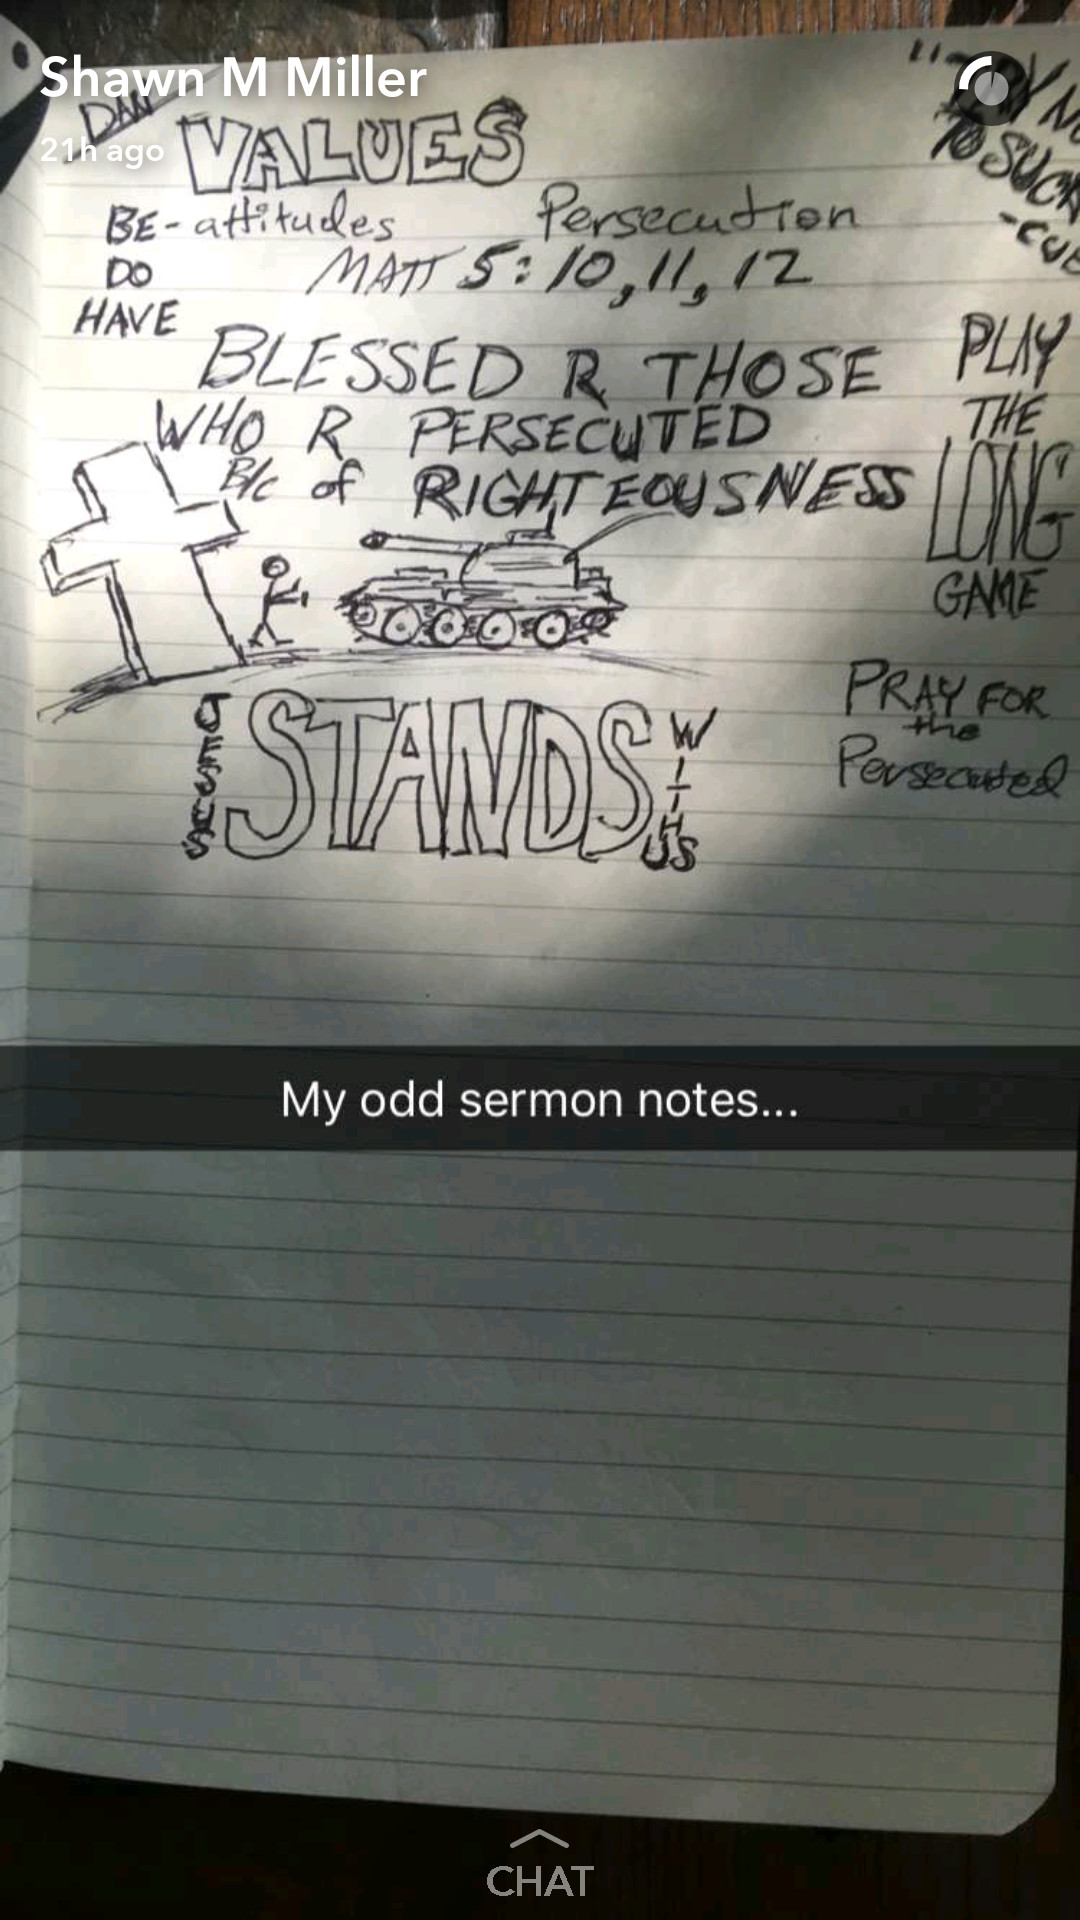 Shawn M Miller
21h ago
DAN
VALUES
BE-attitudes Persecution
DO MATT 5:10,11,12
HAVE
BLESSED R THOSE
WHO R PERSECUTED
B/c of RIGHTEOUSNESS
JESUS STANDS WITH US
TO SUCK
PLAY
THE
LONG
GAME
PRAY FOR
the
Persecuted
My odd sermon notes...
CHAT